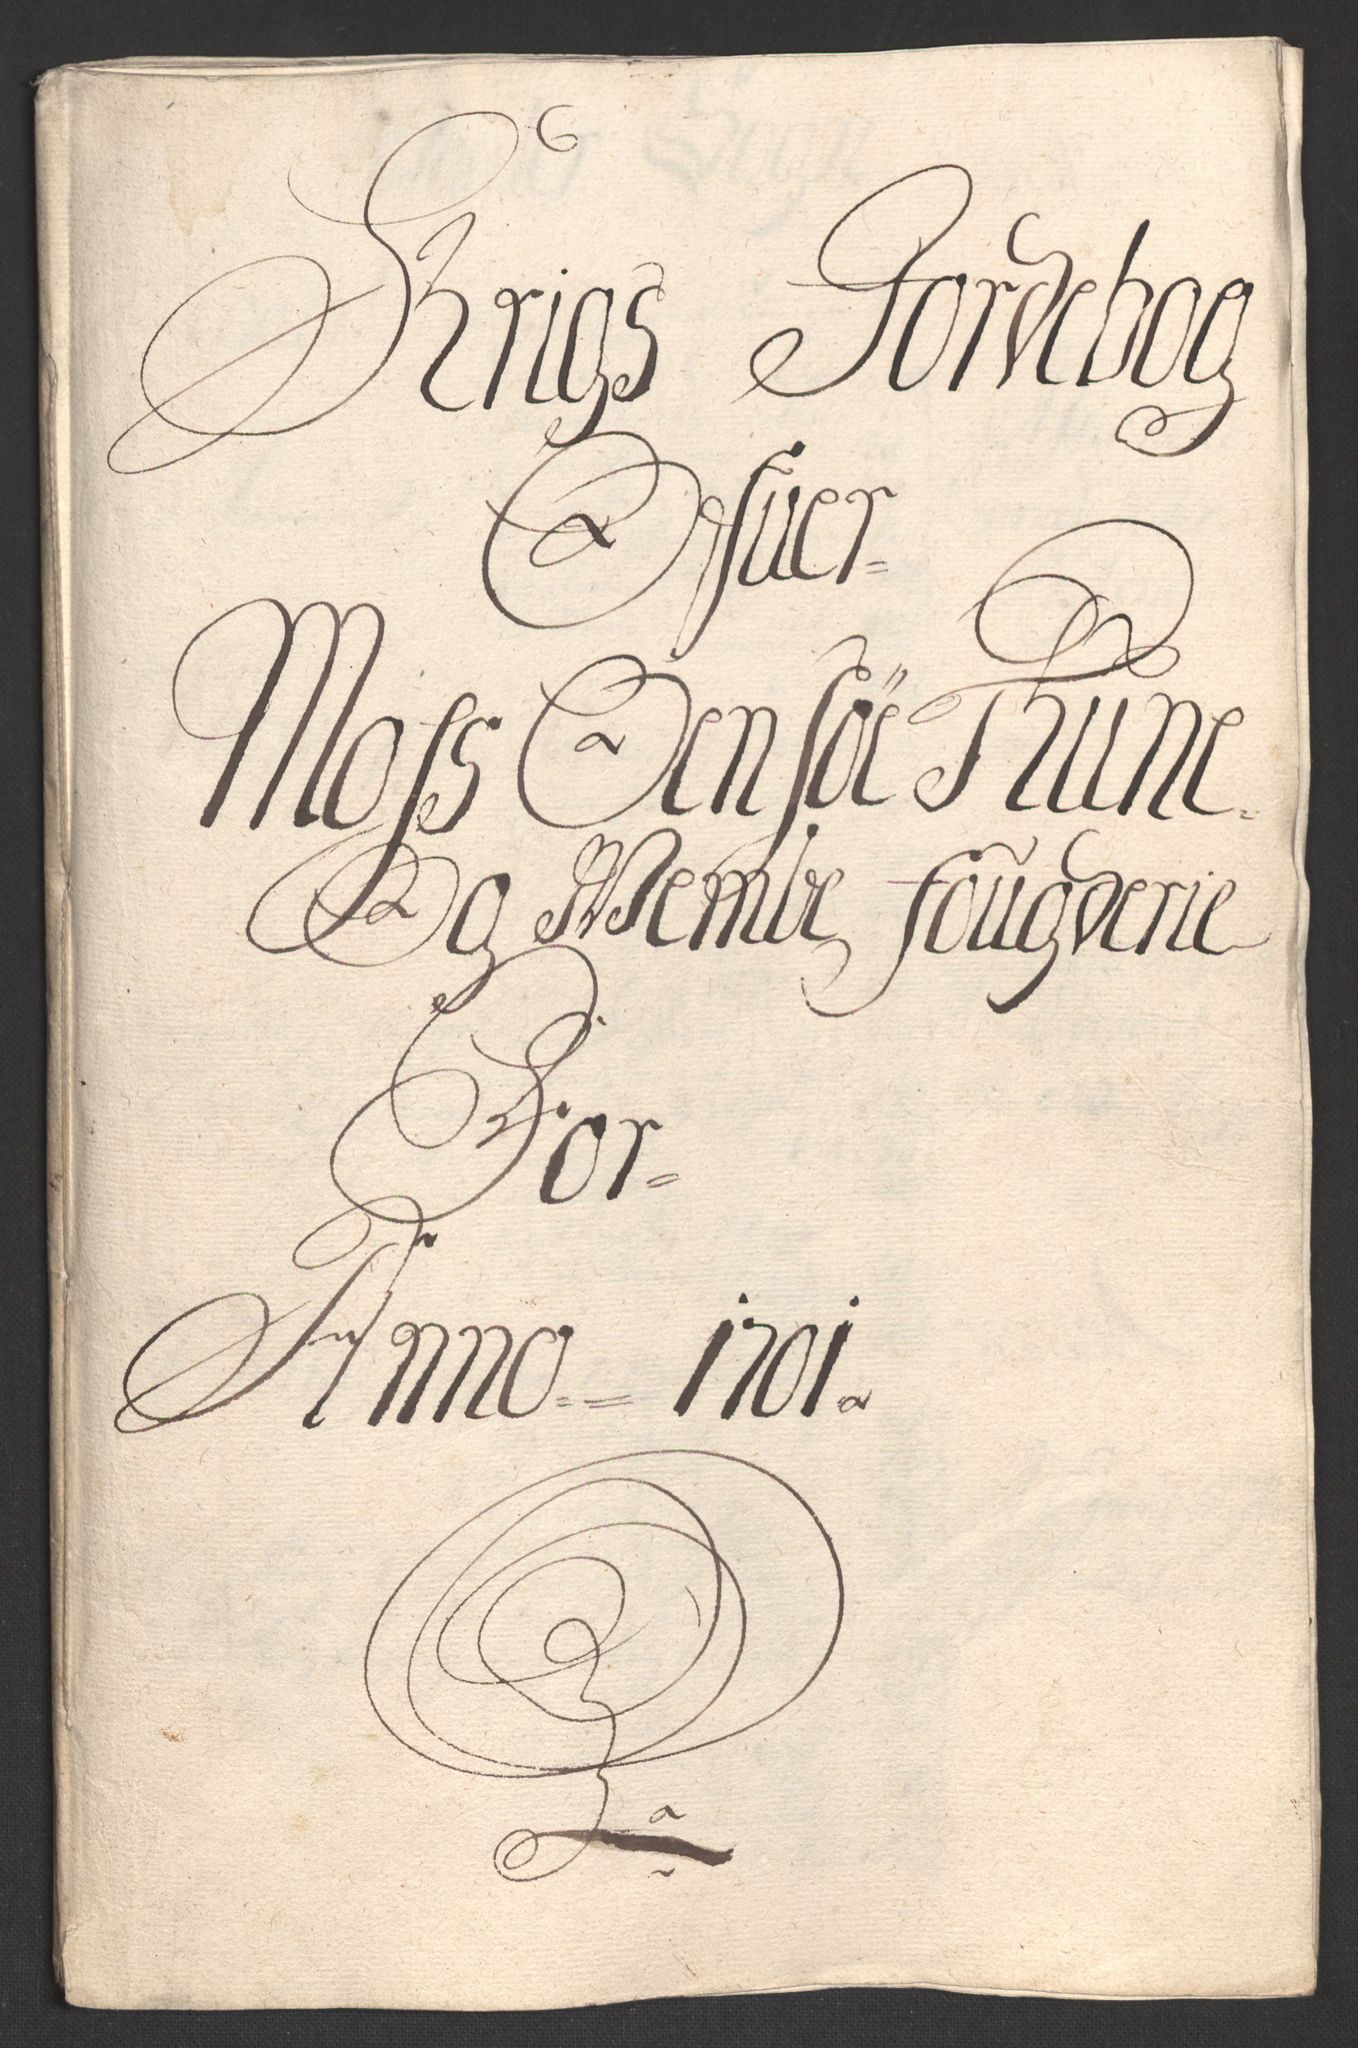 Krigs Jordebog
Ofuer
Moss Oensöe Thune
Og Wemble fougderie
For
Anno 1701